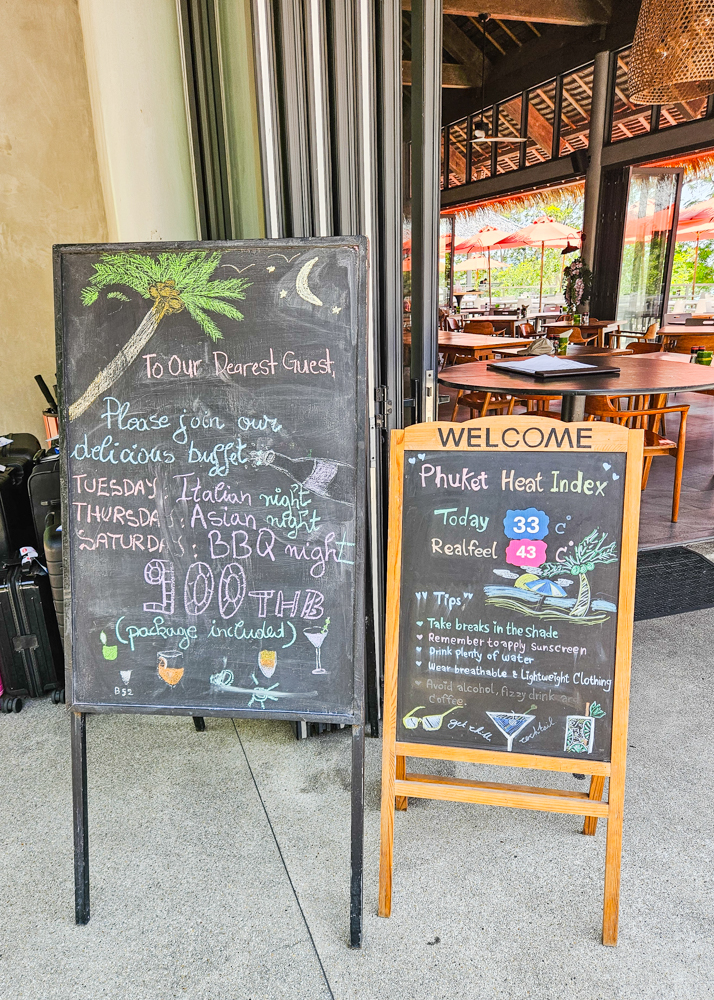 To Our Dearest Guest,
Please join our
delicious buffet
TUESDAY Italian night
THURSDAY: Asian night
SATURDAY: BBQ night
900 THB
(package included)
B52
WELCOME
Phuket Heat Index
Today 33 C°
Realfeel 43 C°
"Tips"
Take breaks in the shade
Remember to apply sunscreen
Drink plenty of water
Wear breathable & Lightweight Clothing
Avoid alcohol, fizzy drink and
Coffee.
get chill
cocktail